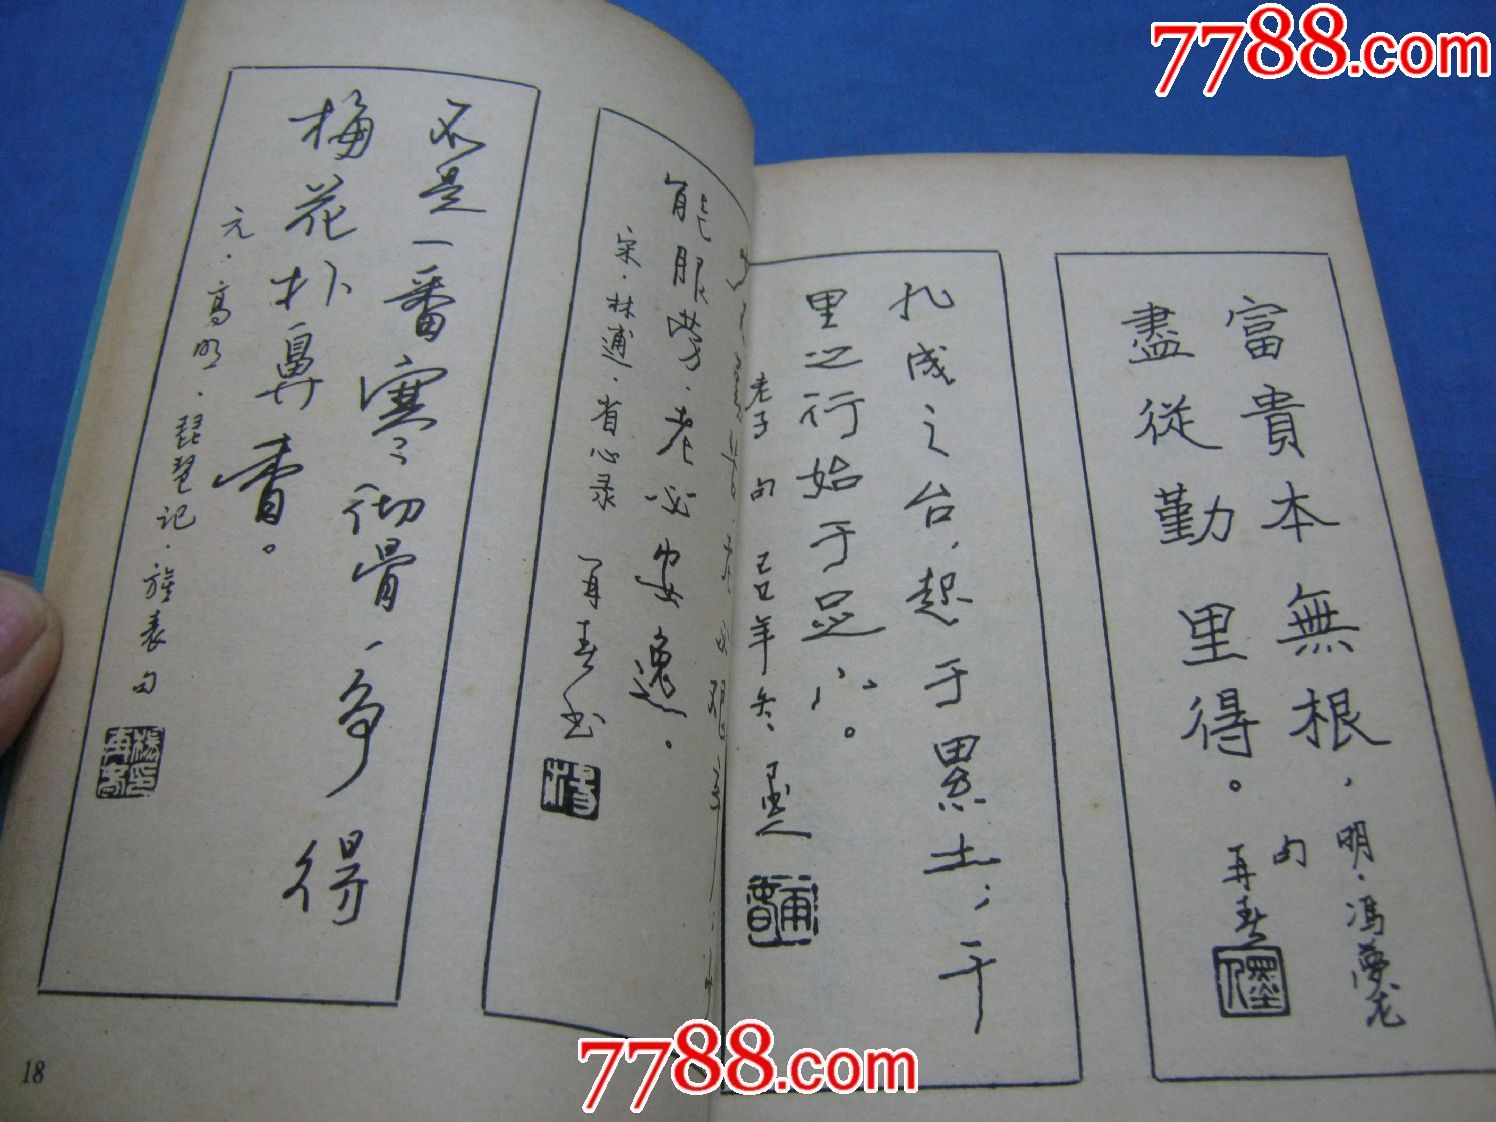 7788.com
富貴本無根，
盡從勤里得。
明·馮夢龙
句
再春
九成之台，起于累土；千
里之行始于足下。
老子句 己巳年冬
能服劳，老必安逸。
宋·林逋·省心录 再春书
不是一番寒彻骨，争得
梅花扑鼻香。
元·高明·琵琶记·旌表句
18
7788.com